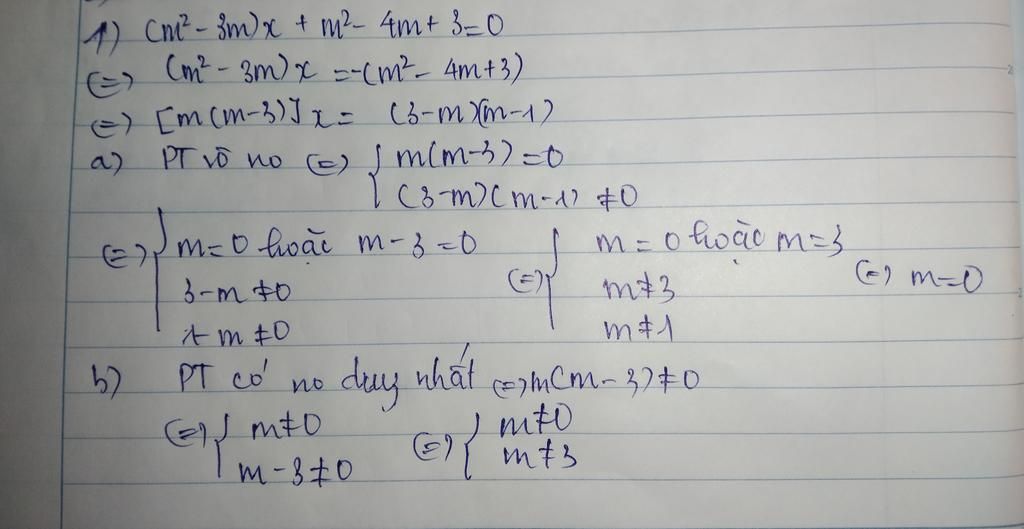 1) (m² - 3m)x + m² - 4m + 3 = 0
(=) (m² - 3m)x = -(m² - 4m + 3)
(=) [m(m-3)]x = (3-m)(m-1)
a) PT vô no (=) { m(m-3) = 0
(3-m)(m-1) ≠ 0
(=) { m=0 hoặc m-3=0 (=) { m=0 hoặc m=3 (=) m=0
3-m ≠ 0 m ≠ 3
1-m ≠ 0 m ≠ 1
b) PT có no duy nhất (=) m(m-3) ≠ 0
(=) { m ≠ 0 (=) { m ≠ 0
m-3 ≠ 0 m ≠ 3